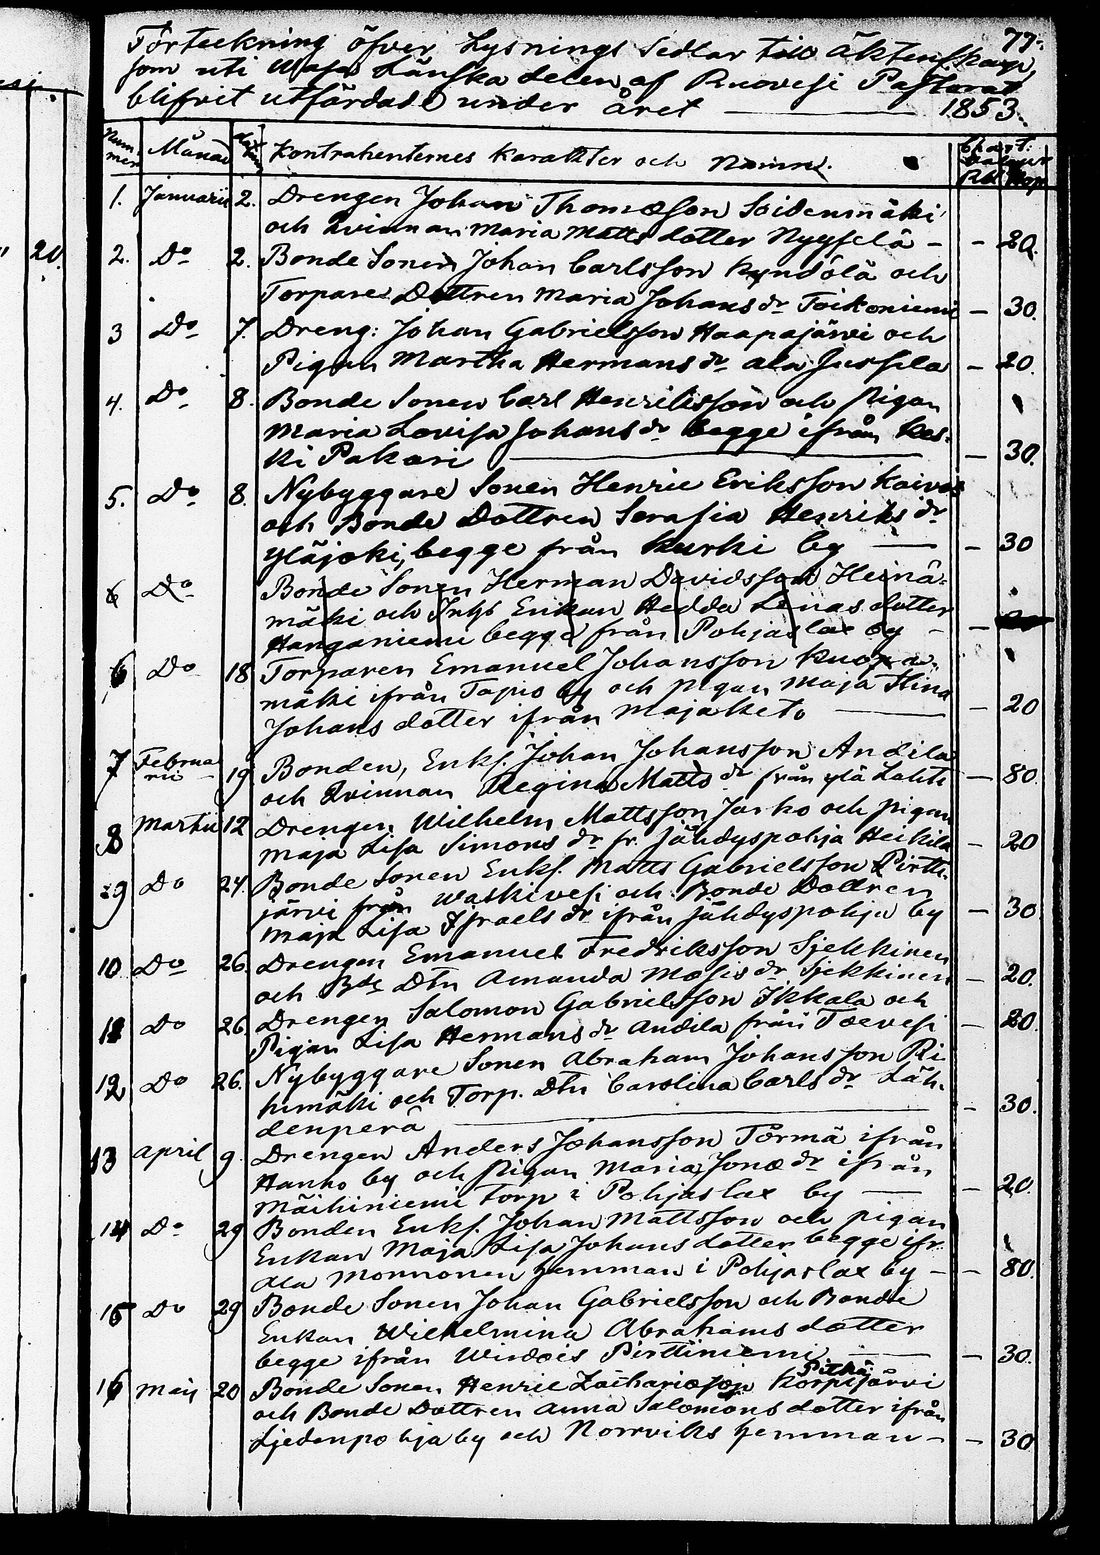 77.
Förteckning öfver Lysnings Sedlar till Äktenskap,
som uti Wasa Länska delen af Ruovesi Pastorat
blifvit utfärdade under året — 1853.
Nummer Månad Kontrahenternes Karakter och Namn. Rub. Kop.
1. Januarii 2. Drengen Johan Thomasson Soidenmäki
och Kvinnan Maria Matts dotter Nyyselä — — 20.
20.
2. Do 2. Bonde Sonen Johan Carlsson Kyndölä och
Torpare Dottren Maria Johans dr Toikoniemi — 30.
3 Do 7. Dreng: Johan Gabrielsson Haapajärvi och
Pigan Martha Hermans dr ala Jussila — 20.
4. Do 8. Bonde Sonen Carl Henriksson och pigan
Maria Lovisa Johans dr begge ifrån Kes-
ki Pakari — 30.
5. Do 8. Nybyggare Sonen Henric Eriksson Koivo
och Bonde Dottren Serafia Henriks dr
yläjoki, begge från Kurki by — — 30
6 Do Bonde Sonen Herman Davidsson Heinä-
mäki och Enkan Hedda Lenas dotter
Hanganiemi begge från Pohjaslax by —
6 Do 18 Torparen Emanuel Johansson Kuora-
mäki ifrån Tapio by och pigan Maja Stina
Johans dotter ifrån Majaketo — — 20
7 Februarii 19 Bonden, Enkl. Johan Johansson Andila
och Kvinnan Regina Matts dr från ylä Lahti — 80
8 Martii 12 Drengen Wilhelm Mattsson Jarko och pigan
Maja Lisa Simons dr fr. Jähdyspohja Heikilä — 20
9 Do 24. Bonde Sonen Enkl. Matts Gabrielsson Pirtti-
järvi från Waskivesi och Bonde Dottren
Maja Lisa Israels dr ifrån Jähdyspohja by — 30
10 Do 26. Drengen Emanuel Fredriksson Sjekkinen
och Bde Dtn Amanda Mosis dr Sjekkinen — 20.
11 Do 26 Drengen Salomon Gabrielsson Ikkala och
Pigan Lisa Hermans dr Andila från Toevesi — 20.
12 Do 26. Nybyggare Sonen Abraham Johansson Ri
himäki och Torp. Dtn Carolina Carls dr Läh-
denperä — 30.
13 April 9. Drengen Anders Johansson Törmä ifrån
Hanho by och pigan Maria Jonæ dr ifrån
Mäihiniemi torp i Pohjaslax by — — 20.
14 Do 29 Bonden Enkl. Johan Mattsson och pigan
Enkan Maja Lisa Johans dotter begge ifr.
Ala Monnonen hemman i Pohjaslax by — — 80.
15 Do 29 Bonde Sonen Johan Gabrielsson och Bonde
Enkan Wilhelmina Abrahams dotter
begge ifrån Wirdois Pirttiniemi — — 30.
16 Maij 20 Bonde Sonen Henric Zachariasson Pitkä Korpijärvi
och Bonde Dottren Anna Salomons dotter ifrån
Ljedenpohja by och Norrviks hemman — — 30